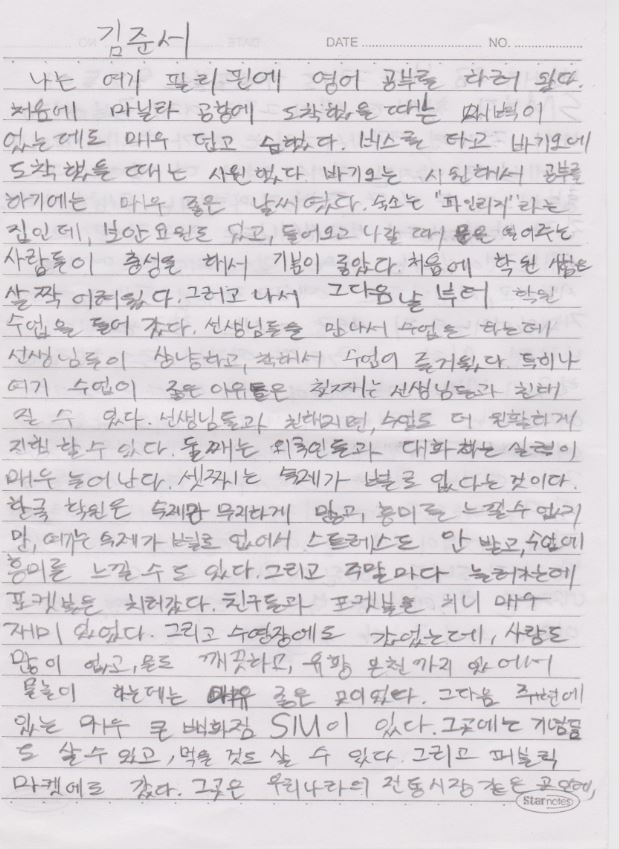 김준서
DATE NO.
나는 여기 필리핀에 영어 공부를 하러 왔다.
처음에 마닐라 공항에 도착했을 때는 새벽이
었는데도 매우 덥고 습했다. 버스를 타고 바기오에
도착했을 때는 시원했다. 바기오는 시원해서 공부를
하기에는 매우 좋은 날씨였다. 숙소는 "파인리지"라는
집인데, 보안요원도 있고, 들어오고 나갈 때 문을 열어주는
사람들이 충성을 해서 기분이 좋았다. 처음에 학원 시험은
살짝 어려웠다. 그러고 나서 그다음 날 부터 학원
수업을 들어 갔다. 선생님들을 만나서 수업을 하는데
선생님들이 상냥하고, 착해서 수업이 즐거웠다. 특히나
여기 수업이 좋은 이유들은 첫째는 선생님들과 친해
질 수 있다. 선생님들과 친해지면, 수업도 더 원활하게
진행 할 수 있다. 둘째는 외국인들과 대화하는 실력이
매우 늘어 난다. 셋째는 숙제가 별로 없다는 것이다.
한국 학원은 숙제만 무지하게 많고, 흥미를 느낄수 없지
만, 여기는 숙제가 별로 없어서 스트레스도 안 받고, 수업에
흥미를 느낄 수도 있다. 그리고 주말마다 놀러가는데
포켓볼을 치러갔다. 친구들과 포켓볼을 치니 매우
재미 있었다. 그리고 수영장에도 갔었는데, 사람도
많이 없고, 물도 깨끗하고, 유황 온천까지 있어서
물놀이 하는데는 매우 좋은 곳이었다. 그다음 주변에
있는 매우 큰 백화점 SM이 있다. 그곳에는 기념품
도 살 수 있고, 먹을 것도 살 수 있다. 그리고 퍼블릭
마켓에도 갔다. 그곳은 우리나라의 전통시장 같은 곳인데,
Starnotes